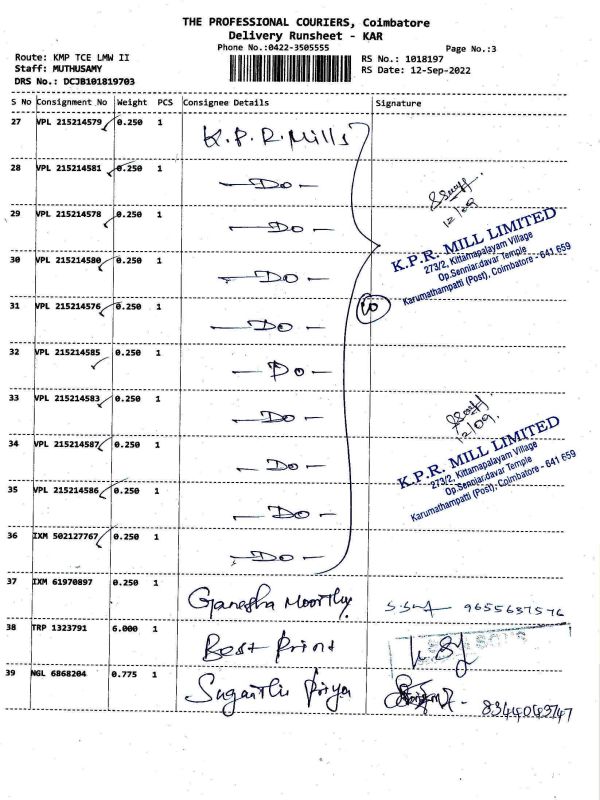 THE PROFESSIONAL COURIERS, Coimbatore
Delivery Runsheet - KAR
Phone No.:0422-3505555
Page No.:3
Route: KMP TCE LMW II
RS No.: 1018197
Staff: MUTHUSAMY
RS Date: 12-Sep-2022
DRS No.: DCJB101819703
S No Consignment No Weight PCS Consignee Details Signature
27 VPL 215214579 0.250 1 K.P.R. Mills
28 VPL 215214581 0.250 1 —Do—
12/09
29 VPL 215214578 0.250 1 —Do—
K.P.R. MILL LIMITED
273/2, Kittampalayam Village
Op.Senniandavar Temple
Karumathampatti (Post), Coimbatore - 641 659
30 VPL 215214580 0.250 1 —Do—
31 VPL 215214576 0.250 1 —Do—
10
32 VPL 215214585 0.250 1 —Do—
33 VPL 215214583 0.250 1 —Do—
12/09.
34 VPL 215214587 0.250 1 —Do—
K.P.R. MILL LIMITED
273/2, Kittampalayam Village
Op.Senniandavar Temple
Karumathampatti (Post), Coimbatore - 641 659
35 VPL 215214586 0.250 1 —Do—
36 IXM 502127767 0.250 1 —Do—
37 IXM 61970897 0.250 1 Ganesha Moorthy 9655637576
38 TRP 1323791 6.000 1 Best Print
39 NGL 6868204 0.775 1 Suganthi Priya 8344043747